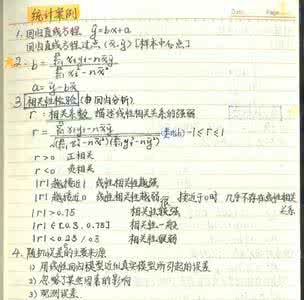 统计案例
1. 回归直线方程 ŷ=bx+a
回归直线方程过点 (x̄,ȳ) [样本中心点]
2. b = Σxiyi-nx̄ȳ / Σxi²-nx̄²
a = ȳ-bx̄
3 相关性检验 (由回归分析)
r：相关系数 描述线性相关关系的强弱
r = Σxiyi-nx̄ȳ / √(Σxi²-nx̄²)(Σyi²-nȳ²) -1≤r≤1
r>0 正相关
r<0 负相关
|r|越接近1 线性相关性越强
|r|越接近0 线性相关性越弱 接近于0时 几乎不存在线性相关
关系
|r|>0.75 相关性较强
|r|∈[0.3, 0.75] 相关性一般
|r|<0.25 相关性很弱
4. 随机误差的主要来源
1) 用线性回归模型近似真实模型所引起的误差
2) 忽略了某些因素的影响
3) 观测误差